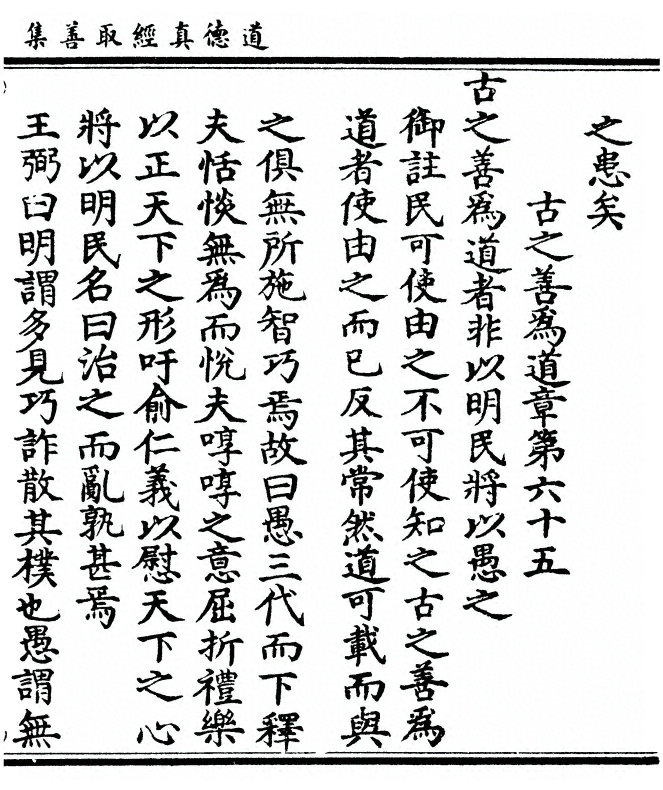 道德真經取善集
之患矣
古之善為道章第六十五
古之善為道者非以明民將以愚之
御註民可使由之不可使知之古之善為
道者使由之而已反其常然道可載而與
之俱無所施智巧焉故曰愚三代而下釋
夫恬惔無為而悅夫啍啍之意屈折禮樂
以正天下之形吁俞仁義以慰天下之心
將以明民名曰治之而亂孰甚焉
王弼曰明謂多見巧詐散其樸也愚謂無